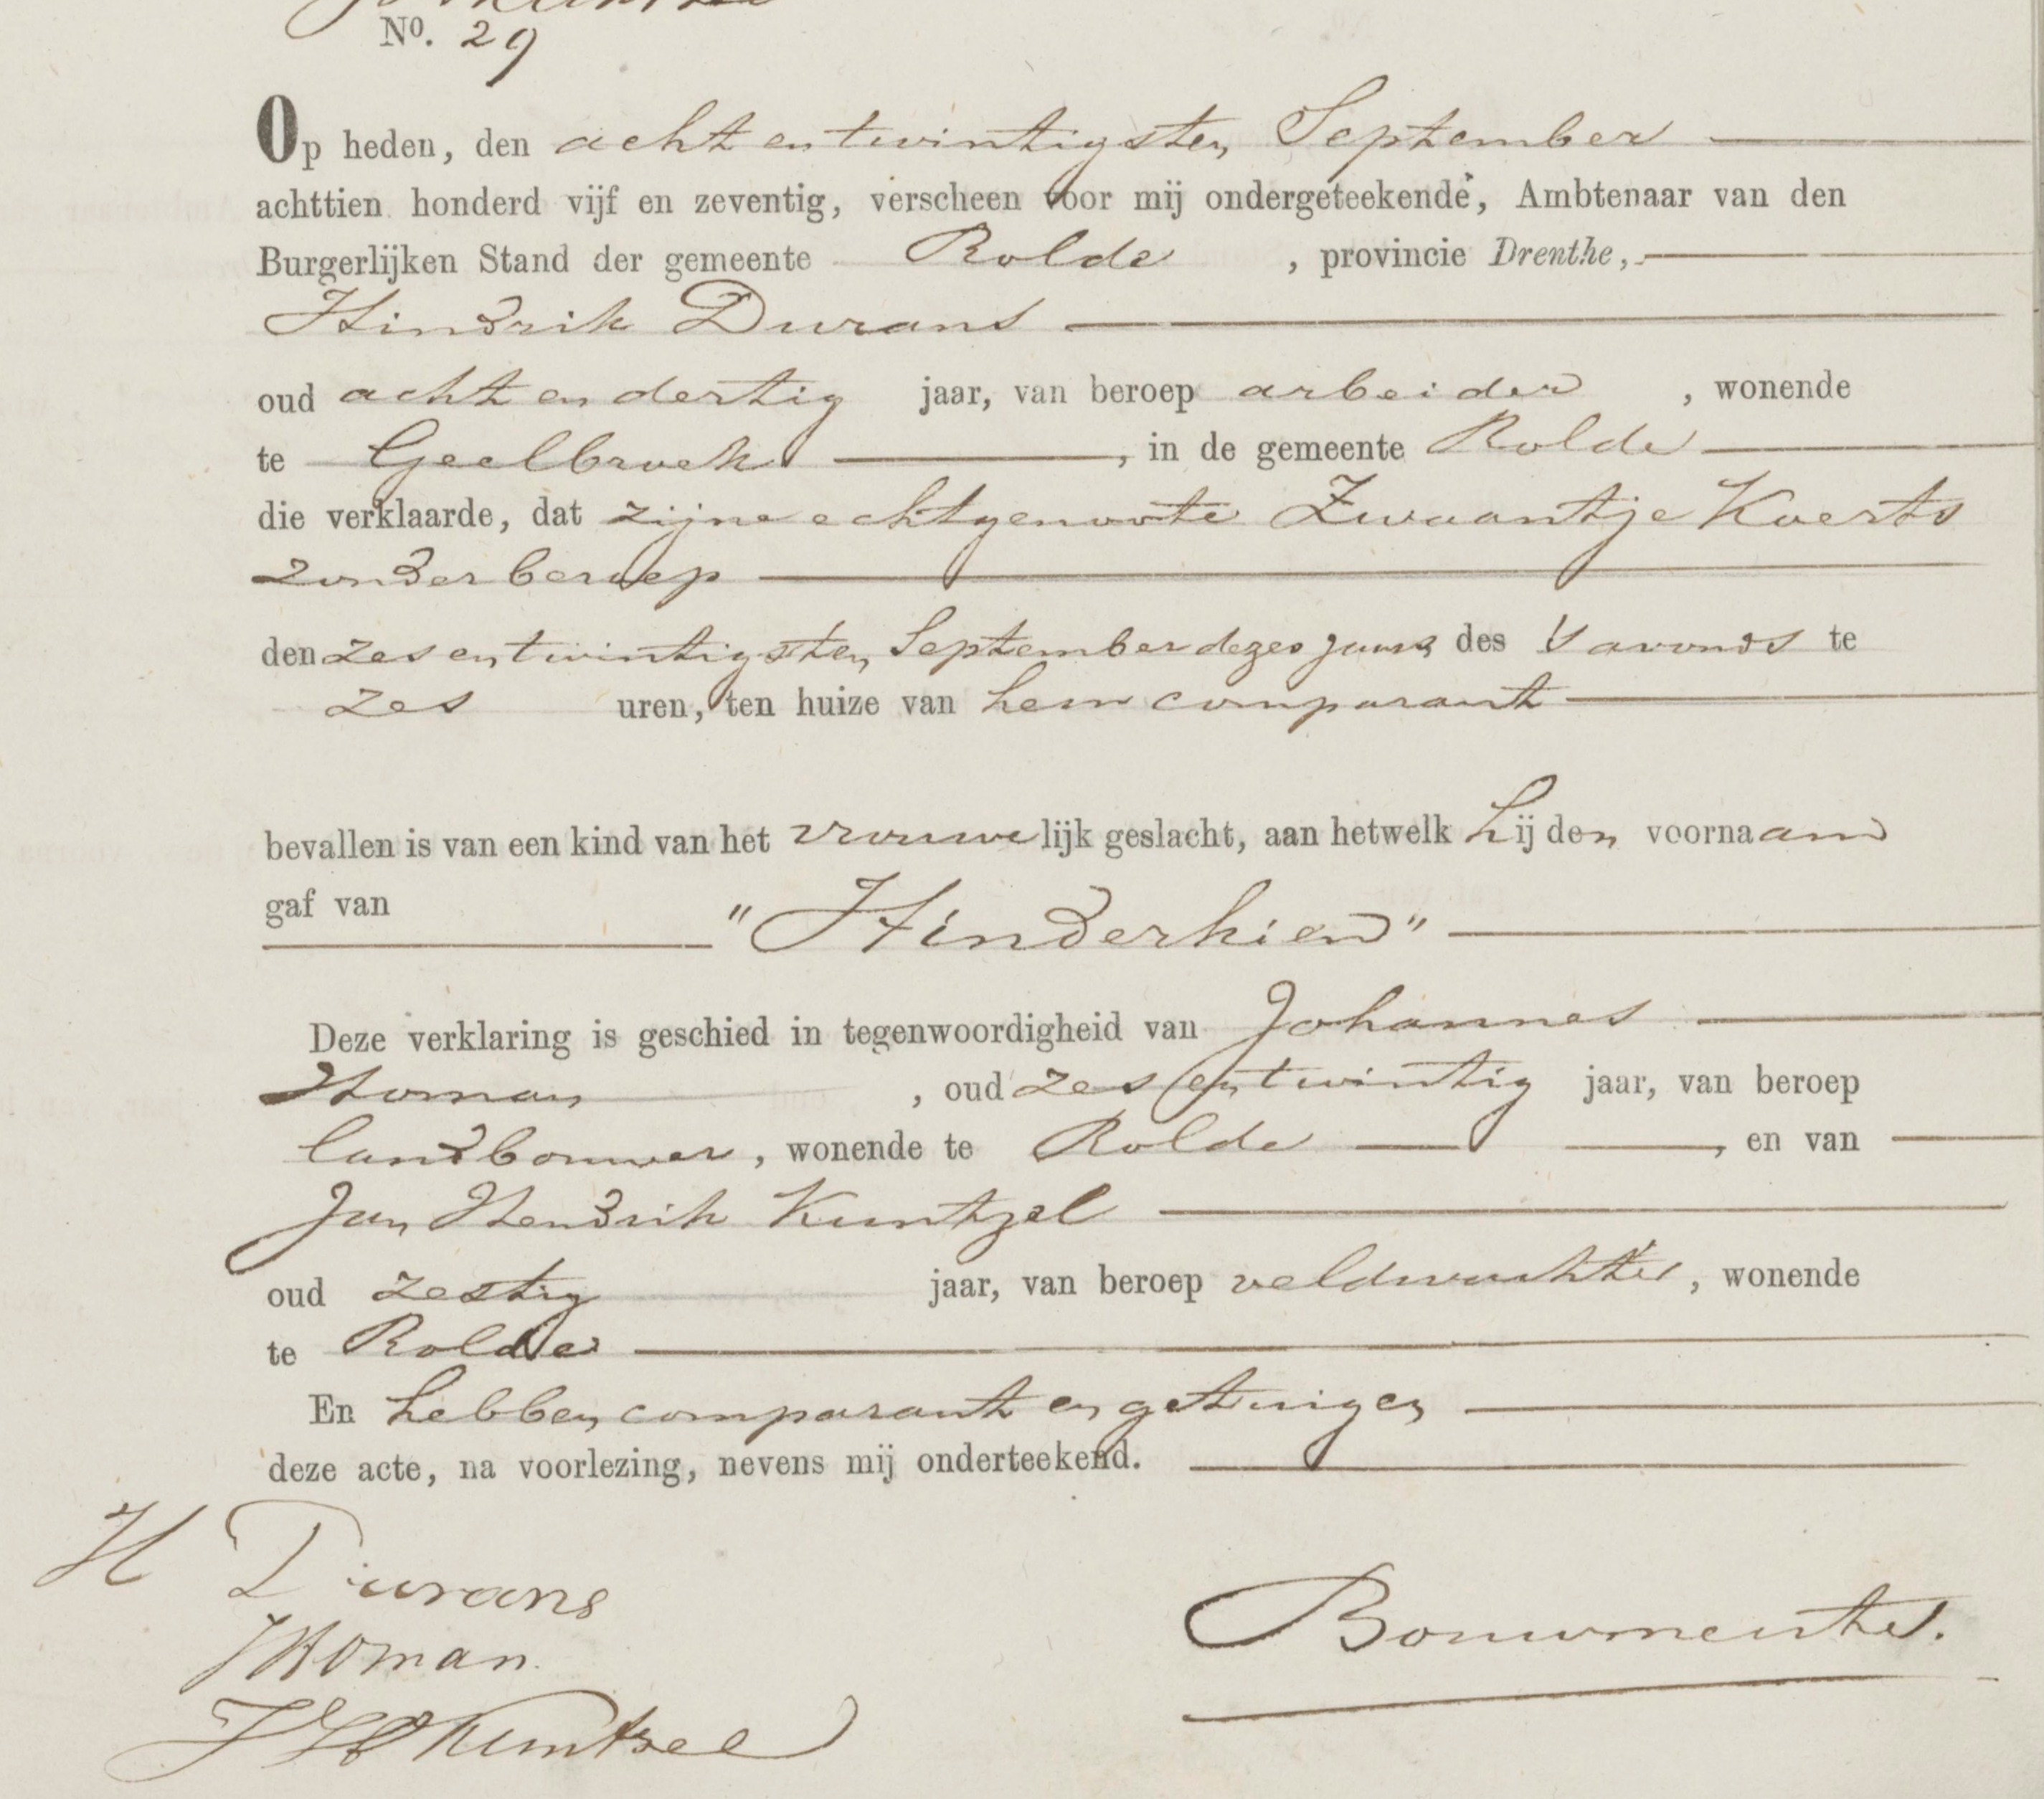 No. 29
Op heden, den achtentwintigsten September
achttien honderd vijf en zeventig, verscheen voor mij ondergeteekende, Ambtenaar van den
Burgerlijken Stand der gemeente Rolde, provincie Drenthe,
Hindrik Durans
oud achtendertig jaar, van beroep arbeider, wonende
te Geelbroek, in de gemeente Rolde
die verklaarde, dat zijne echtgenoote Zwaantje Koerts
zonder beroep
den zesentwintigsten September dezes jaars des 's avonds te
zes uren, ten huize van hem comparant
bevallen is van een kind van het vrouwelijk geslacht, aan hetwelk hij den voornaam
gaf van "Hinderkien"
Deze verklaring is geschied in tegenwoordigheid van Johannes
Homan, oud zesentwintig jaar, van beroep
landbouwer, wonende te Rolde, en van
Jan Hendrik Kuntzel
oud zestig jaar, van beroep veldwachter, wonende
te Rolde
En hebben comparant en getuigen
deze acte, na voorlezing, nevens mij onderteekend.
H Durans
JHoman.
JHKuntzel
Bouwmeester.